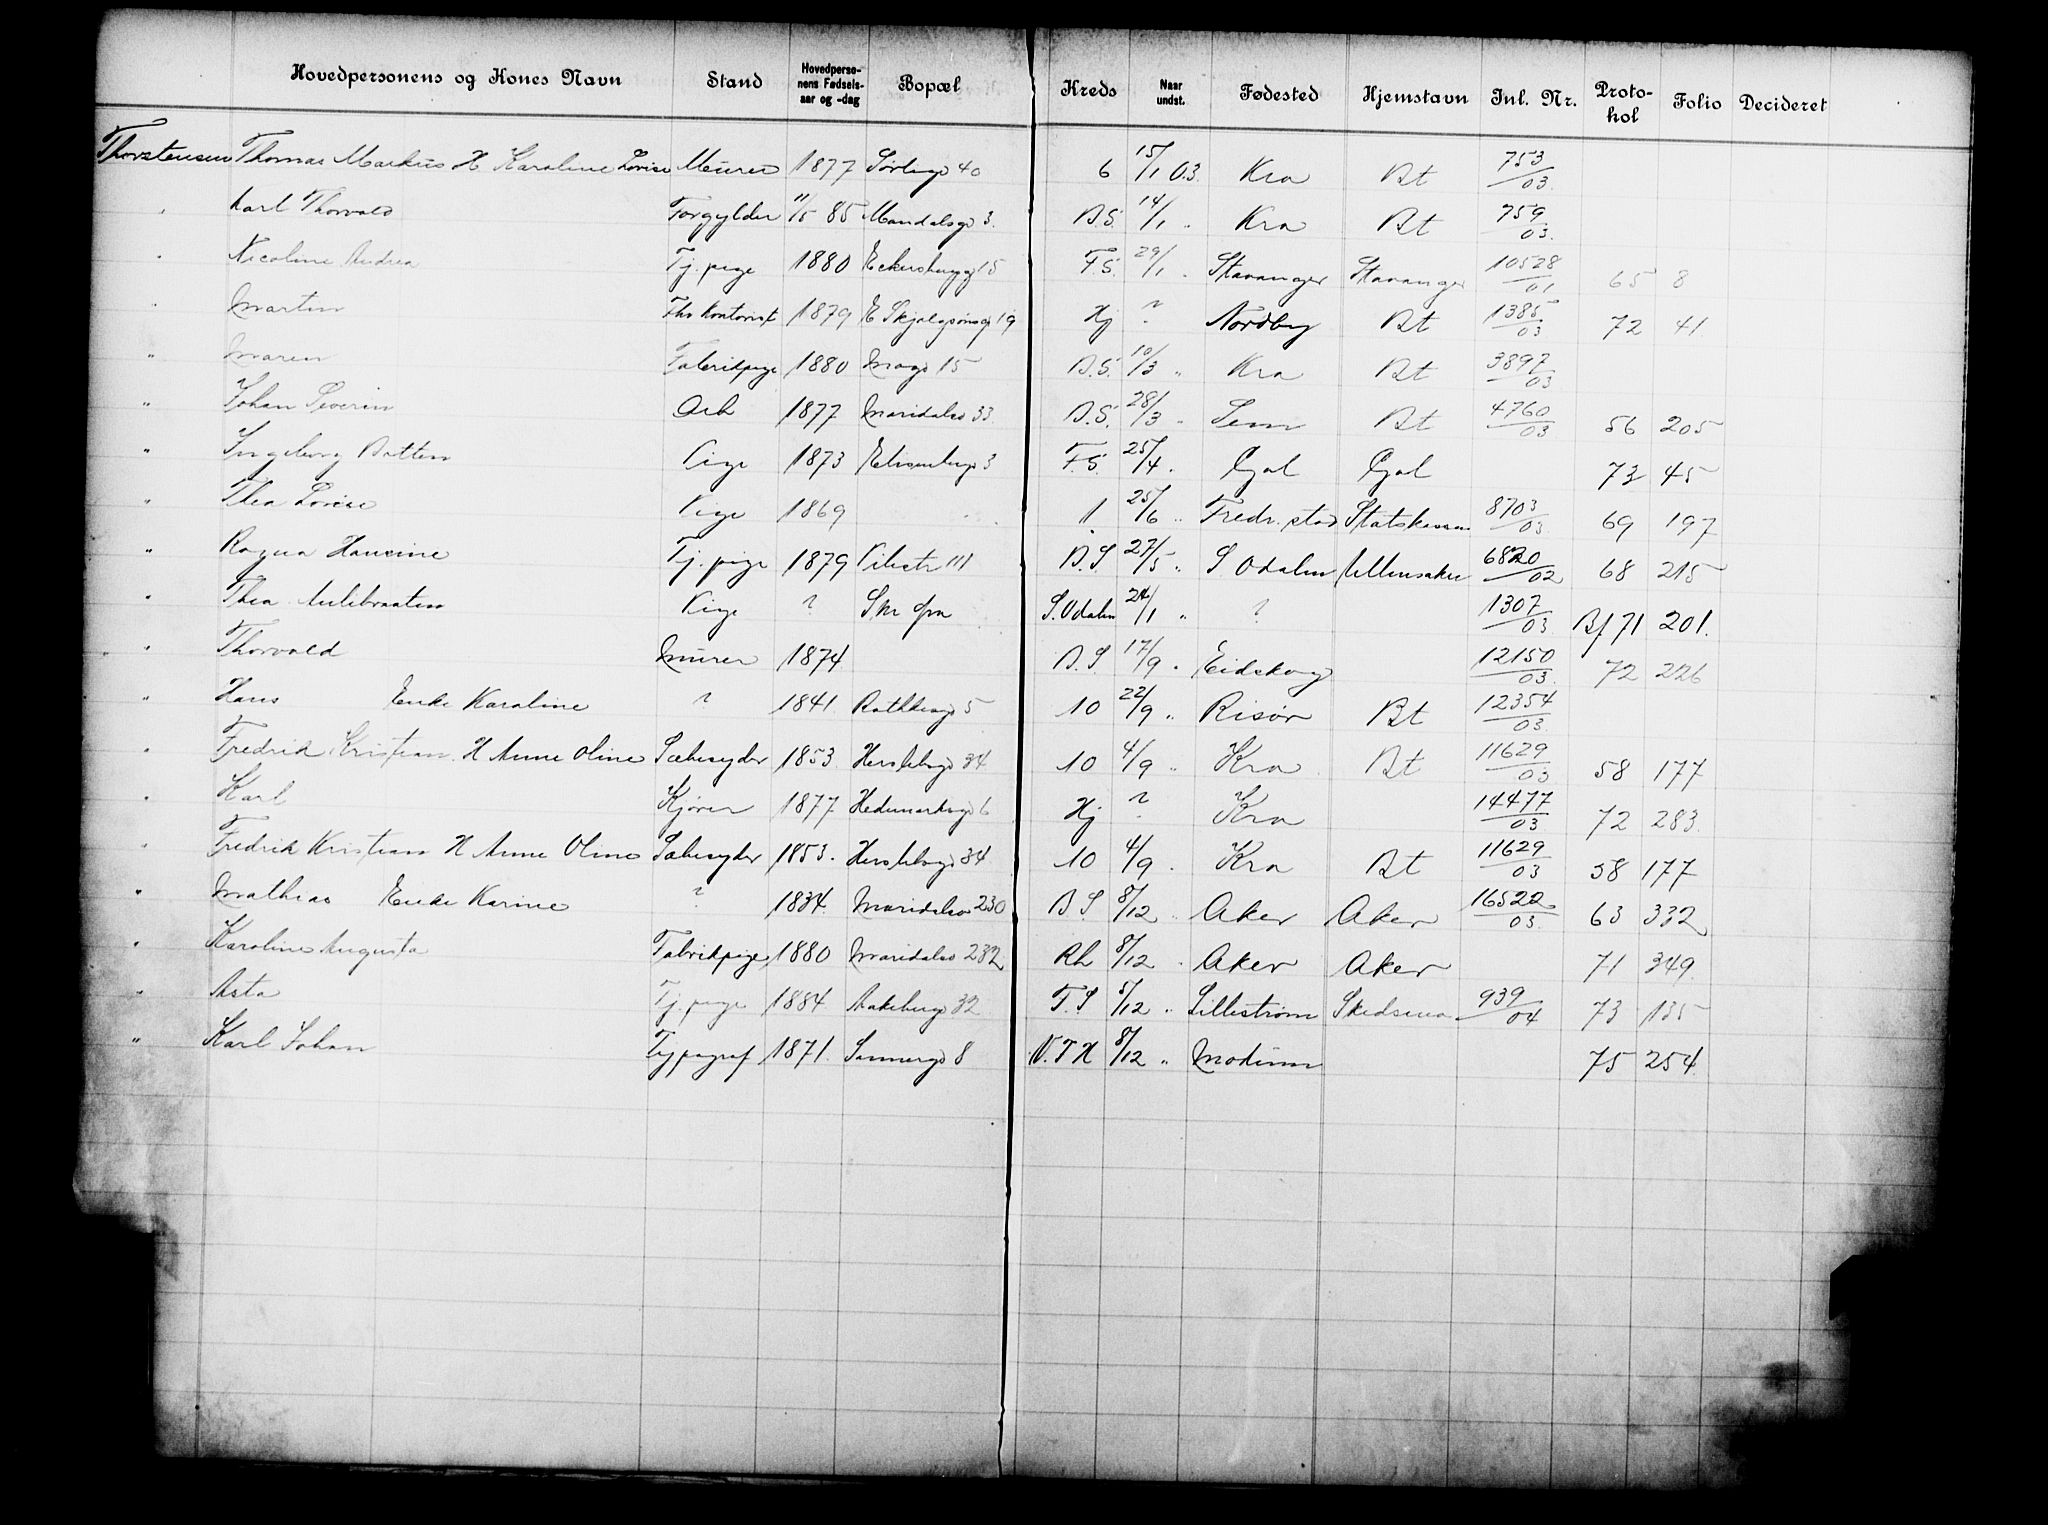 Hovedpersonens og Kones Navn Stand Hovedperso-nens Fødsels-aar og -dag Bopæl Kreds Naar undst. Fødested Hjemstavn Inl. Nr. Proto-kol Folio Decideret
Thorstensen Thomas Markus H Karoline Lovise Murer 1877 40 6 15/1 03. Kra Bt 753/03.
" Karl Thorvald Forgylder 11/5 85 Mandalsgd 3. B.S. 14/1 " Kra Bt 759/03.
" Nicoline Andrea Tj. pige 1880 Eckersbergg 15 F.S. 29/1 " Stavanger Stavanger 10528/01 65 8
" Martin Fhv Kontorist 1879 19 Hj ? Nordby Bt 1385/03 72 41.
" Maren Fabrikpige 1880 15 B.S. 10/3 " Kra Bt 3897/03
" Johan Severin Arb 1877 Maridalsv 33 B.S. 28/3 " Sem Bt 4760/03 56 205
" Ingeborg Botten Pige 1873 Elisenbergv 3 F.S. 25/4 " Gol Gol 73 45
" Thea Lovise Pige 1869 1 25/6 " Fredr.stad Statskassen 8703/03 69 197
" Ragna Hansine Tj. pige 1879 Pilestr 111 B.S 27/5 " S Odalen Ullensaker 6820/02 68 215
" Thea Pige ? S.Odalen 24/1 " ? 1307/03 Bf 71 201.
" Thorvald Murer 1874 B.S 17/9 " Eidskog 12150/03. 72 226
" Hans Enke Karoline ? 1841. Rathkesgd 5 10 22/9 " Risør Bt 12354/03.
" Fredrik Kristian H Anne Oline Sæbesyder 1853. Herslebsgd 34 10 4/9 " Kra Bt 11629/03 58 177
" Karl Kjører 1877 Hedemarksgd 6 Hj ? Kra 14477/03 72 283.
" Fredrik Kristian H Anne Oline Sæbesyder 1853. Herslebsgd 34 10 4/9 " Kra Bt 11629/03 58 177
" Mathias Enke Karine ? 1834. Maridalsv 230 B S 8/12 " Aker Aker 16522/03. 63 332
" Karoline Augusta Fabrikpige 1880 Maridalsv 232 Rh 8/12 " Aker Aker 71 349.
" Asta Tj. pige 1884. Aakebergv 32 F.S 5/12 " Lillestrøm Skedsmo 939/04 73 135
" Karl Johan Typograf 1871. Sannergd 8 V.F H 8/12 " Modum 75 254.